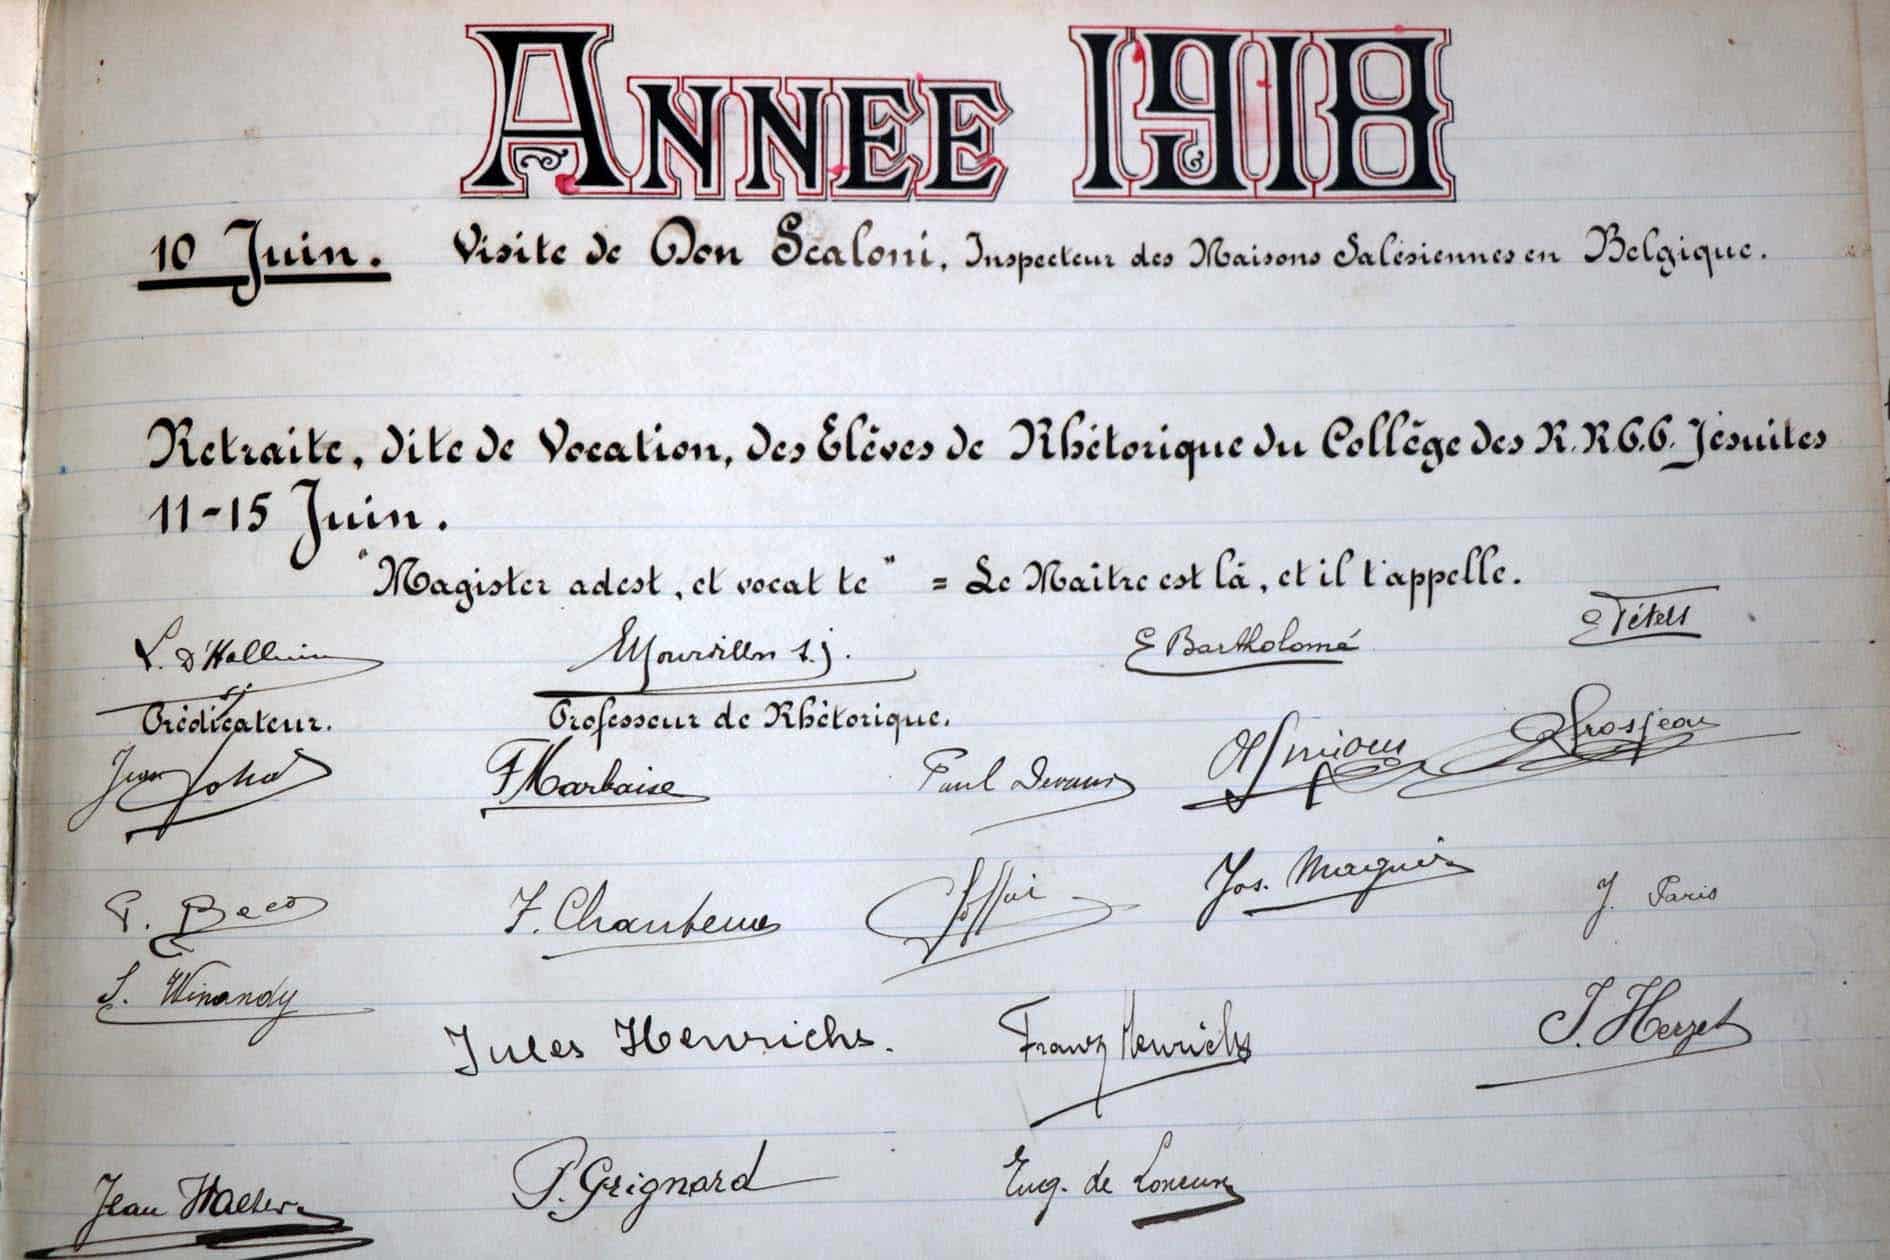 ANNEE 1918
10 Juin. Visite de Don Scaloni, Inspecteur des Maisons Salésiennes en Belgique.
Retraite, dite de Vocation, des Elèves de Rhétorique du Collège des R.R.P.P. Jésuites
11-15 Juin.
"Magister adest, et vocat te" = Le Maître est là, et il t'appelle.
L. D'Halluin sj E Mourvillon s.j. E Bartholomé
Prédicateur. Professeur de Rhétorique.
Jean F Marbaise Paul
P. Beco F. Jos. J. Paris
S. Winandy
Jules Henrichs. Franz Henrichs J. Herzet
Jean P. Grignard Eug. de